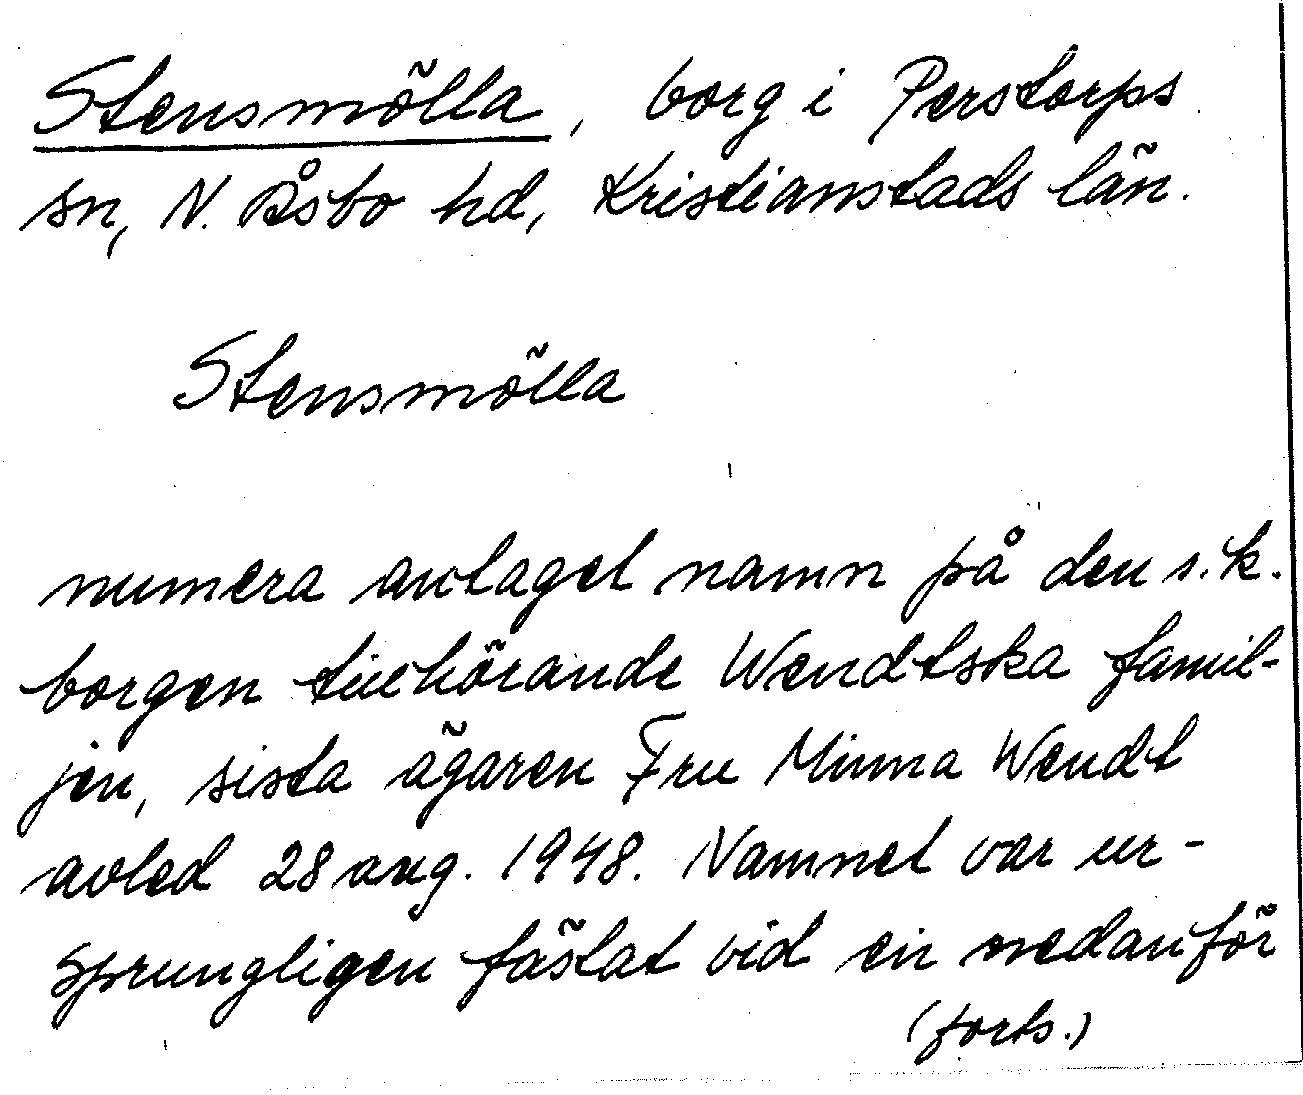 Stensmölla, borg i Perstorps
sn, N. Åsbo hd, Kristianstads län.
Stensmölla
numera avlaget namn på den s.k.
borgen tillhörande Wendtska famil-
jen, sista ägaren Fru Minna Wendt
avled 28 aug. 1948. Namnet var ur-
sprungligen fästat vid en nedanför
(forts.)